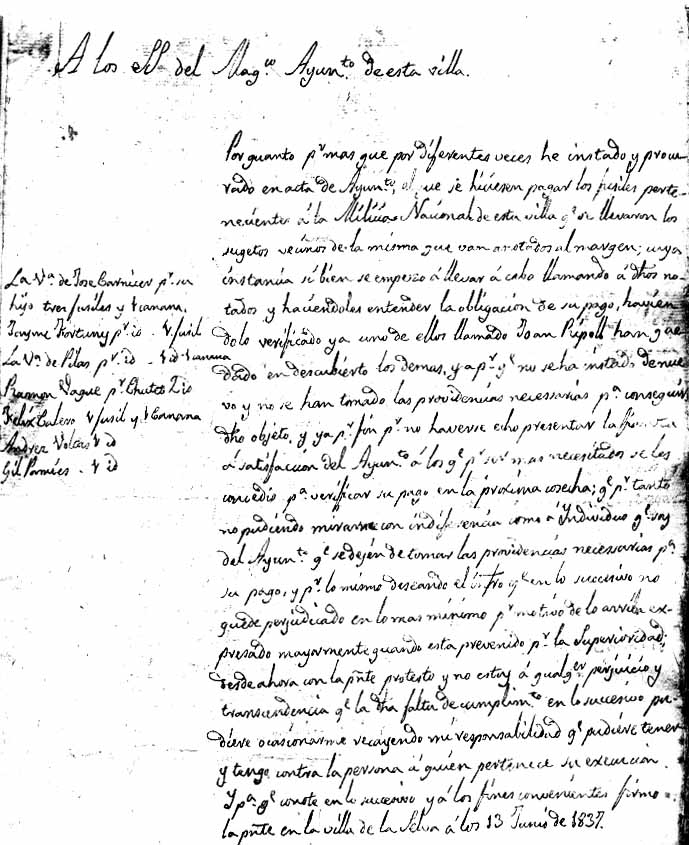 A los SS. del Mag.co Ayun.to de esta villa.
La V.a de Jose Carnicer p.r su
hijo tres fusiles y 1 canana.
Jayme Fortuny p.r id - 1 fusil
La V.a de Pilas p.r id - 1 id 1 canana
Ramon Vague p.r
Felix Calero 1 fusil y 1 canana
Andrez Voltas 1 id
Gil Pamies - 1 id
Por quanto p.r mas que por diferentes veces he instado y procu-
rado en acta de Ayun.to, el que se hiciesen pagar los fusiles perte-
necientes á la Milicia Nacional de esta villa q.e se llevaron los
sugetos vecinos de la misma que van anotados al margen; cuya
instancia si bien se empezo á llevar á cabo llamando á dhos no-
tados y haciendoles entender la obligacion de su pago, havien
dolo verificado ya uno de ellos llamado Joan Pipoll han que
dado en descubierto los demas, y a p.r q.e no se ha instado de nue
vo y no se han tomado las providencias necessarias p.a conseguir
dho objeto, y ya p.r fin p.r no haverse echo presentar la
á satisfaccion del Ayun.to á los q.e p.r ser mas necesitados se les
concedio p.a verificar su pago en la proxima cosecha; q.e p.r tanto
no pudiendo mirarme con indiferencia como á Individuo q.e soy
del Ayun.to q.e se dejen de tomar las providencias necessarias p.a
su pago, y p.r lo mismo deseando el q.e en lo succesivo no
quede perjudicado en lo mas minimo p.r motivo de lo arriba ex-
presado mayormente quando esta prevenido p.r la Superioridad;
desde ahora con la pñte protesto y no estoy á qualq.er perjuicio y
transcendencia q.e la dha falta de cumplim.to en lo sucesivo pu-
diere ocasionarme recayendo mi responsabilidad q.e pudiere tener
y tengo contra la persona á quien pertenece su execucion.
Y p.a q.e conste en lo sucesivo y á los fines convenientes firmo
la pñte en la villa de la Selva á los 13 Junio de 1837.